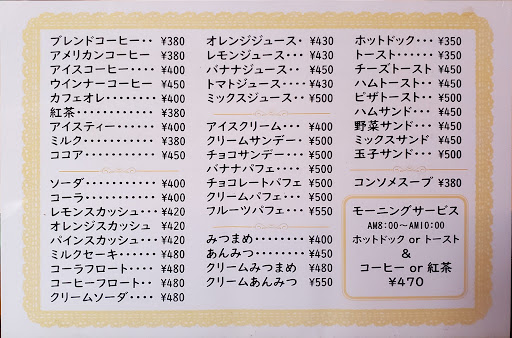 ブレンドコーヒー・・ ¥380
アメリカンコーヒー ¥380
アイスコーヒー・・・・ ¥400
ウインナーコーヒー ¥450
カフェオレ・・・・・・・・ ¥400
紅茶・・・・・・・・・・・・ ¥380
アイスティー・・・・・・ ¥400
ミルク・・・・・・・・・・ ¥380
ココア・・・・・・・・・・ ¥450
ソーダ・・・・・・・・・・ ¥400
コーラ・・・・・・・・・・ ¥400
レモンスカッシュ・・ ¥420
オレンジスカッシュ ¥420
パインスカッシュ・・ ¥420
ミルクセーキ・・・・・・ ¥480
コーラフロート・・・・ ¥480
コーヒーフロート・・ ¥480
クリームソーダ・・・・ ¥480
オレンジジュース・ ¥430
レモンジュース・・・ ¥430
バナナジュース・・ ¥450
トマトジュース・・・・ ¥430
ミックスジュース・・ ¥500
アイスクリーム・・・ ¥400
クリームサンデー・ ¥500
チョコサンデー・・・ ¥500
バナナパフェ・・・・ ¥500
チョコレートパフェ ¥500
クリームパフェ・・・ ¥500
フルーツパフェ・・・ ¥550
みつまめ・・・・・・・・ ¥400
あんみつ・・・・・・・・ ¥450
クリームみつまめ ¥480
クリームあんみつ ¥550
ホットドック・・・ ¥350
トースト・・・・・・・ ¥350
チーズトースト ¥450
ハムトースト・・・ ¥450
ピザトースト・・・ ¥500
ハムサンド・・・・ ¥450
野菜サンド・・・・ ¥450
ミックスサンド ¥450
玉子サンド・・・・ ¥500
コンソメスープ ¥380
モーニングサービス
AM8:00～AM10:00
ホットドック or トースト
&
コーヒー or 紅茶
¥470